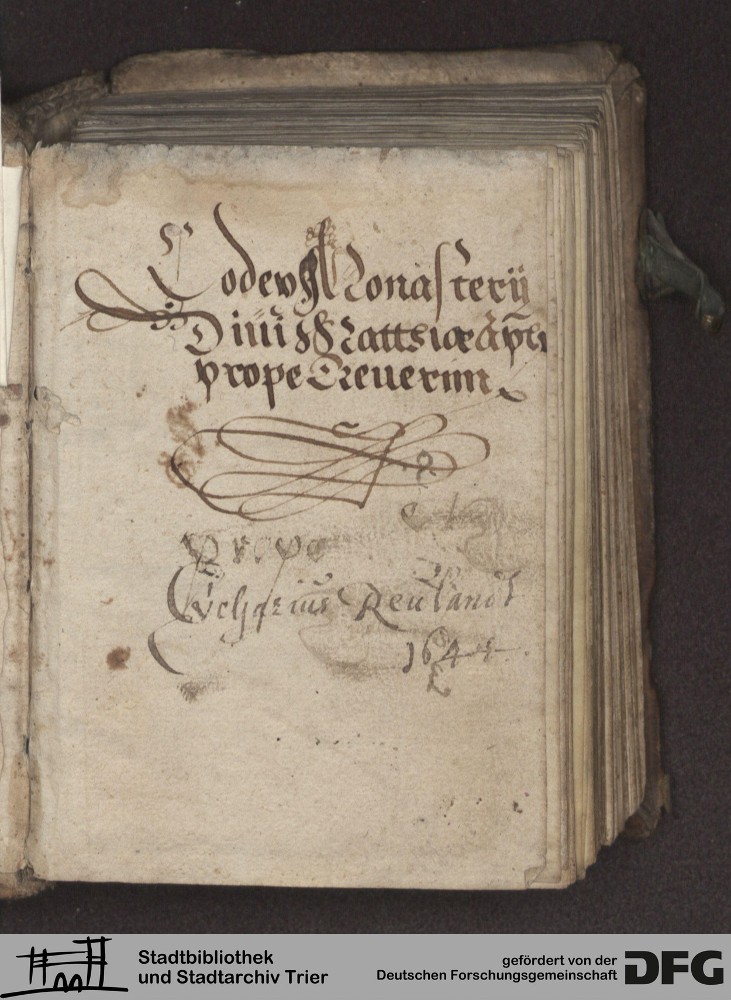 Codex Monasterij
Diui Matthiæ Apli
prope Treuerim
prope
Eucharius Reulandt
1644
Stadtbibliothek
und Stadtarchiv Trier
gefördert von der
Deutschen Forschungsgemeinschaft
DFG